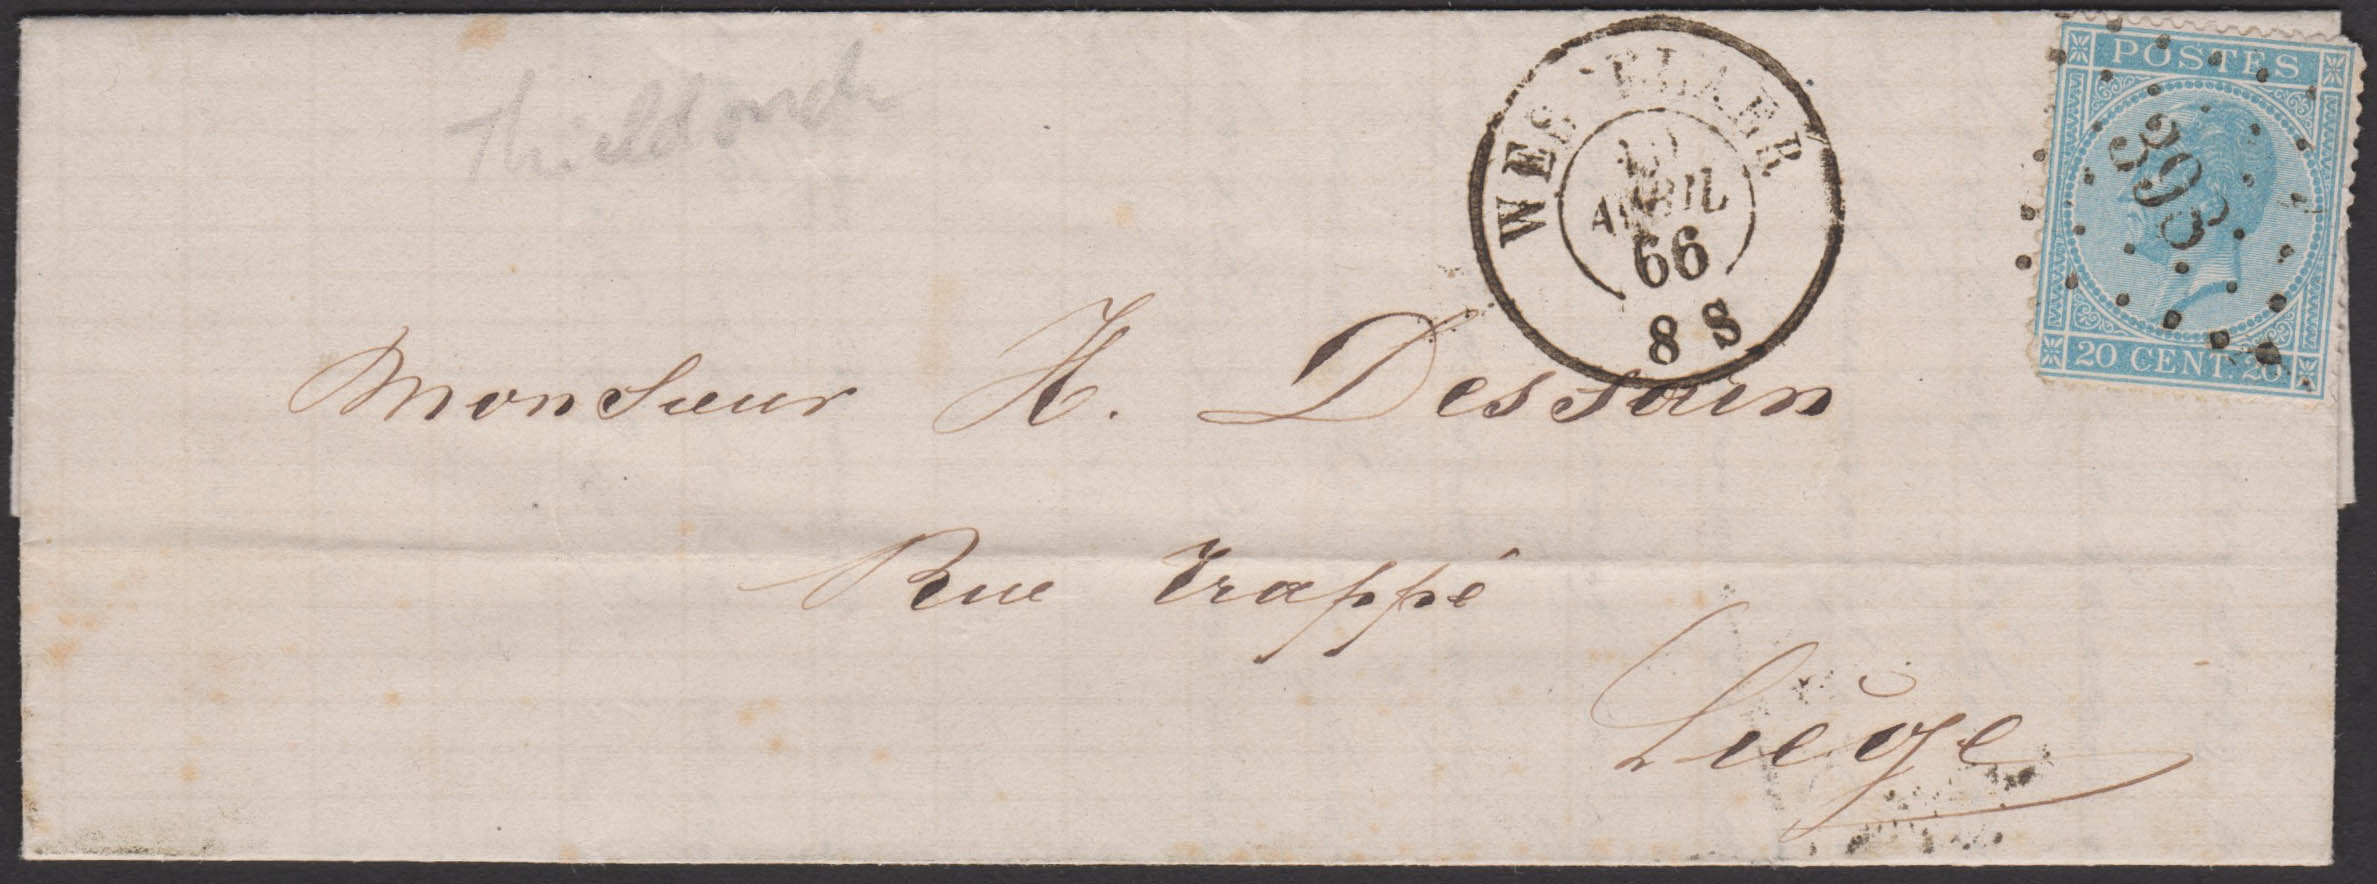 Thieldonck
WESPELAER
AVRIL
66
8 S
POSTES
393
20 CENT. 20
Monsieur H. Dessain
Rue Trappé
Liége